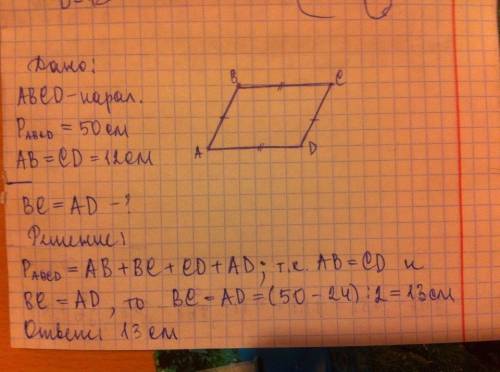 Дано:
ABCD - парал.
P ABCD = 50 см
AB = CD = 12 см
BC = AD - ?
B
C
A
D
Решение:
P ABCD = AB + BC + CD + AD; т.к. AB = CD и
BC = AD, то BC = AD = (50 - 24) : 2 = 13 см
Ответ: 13 см